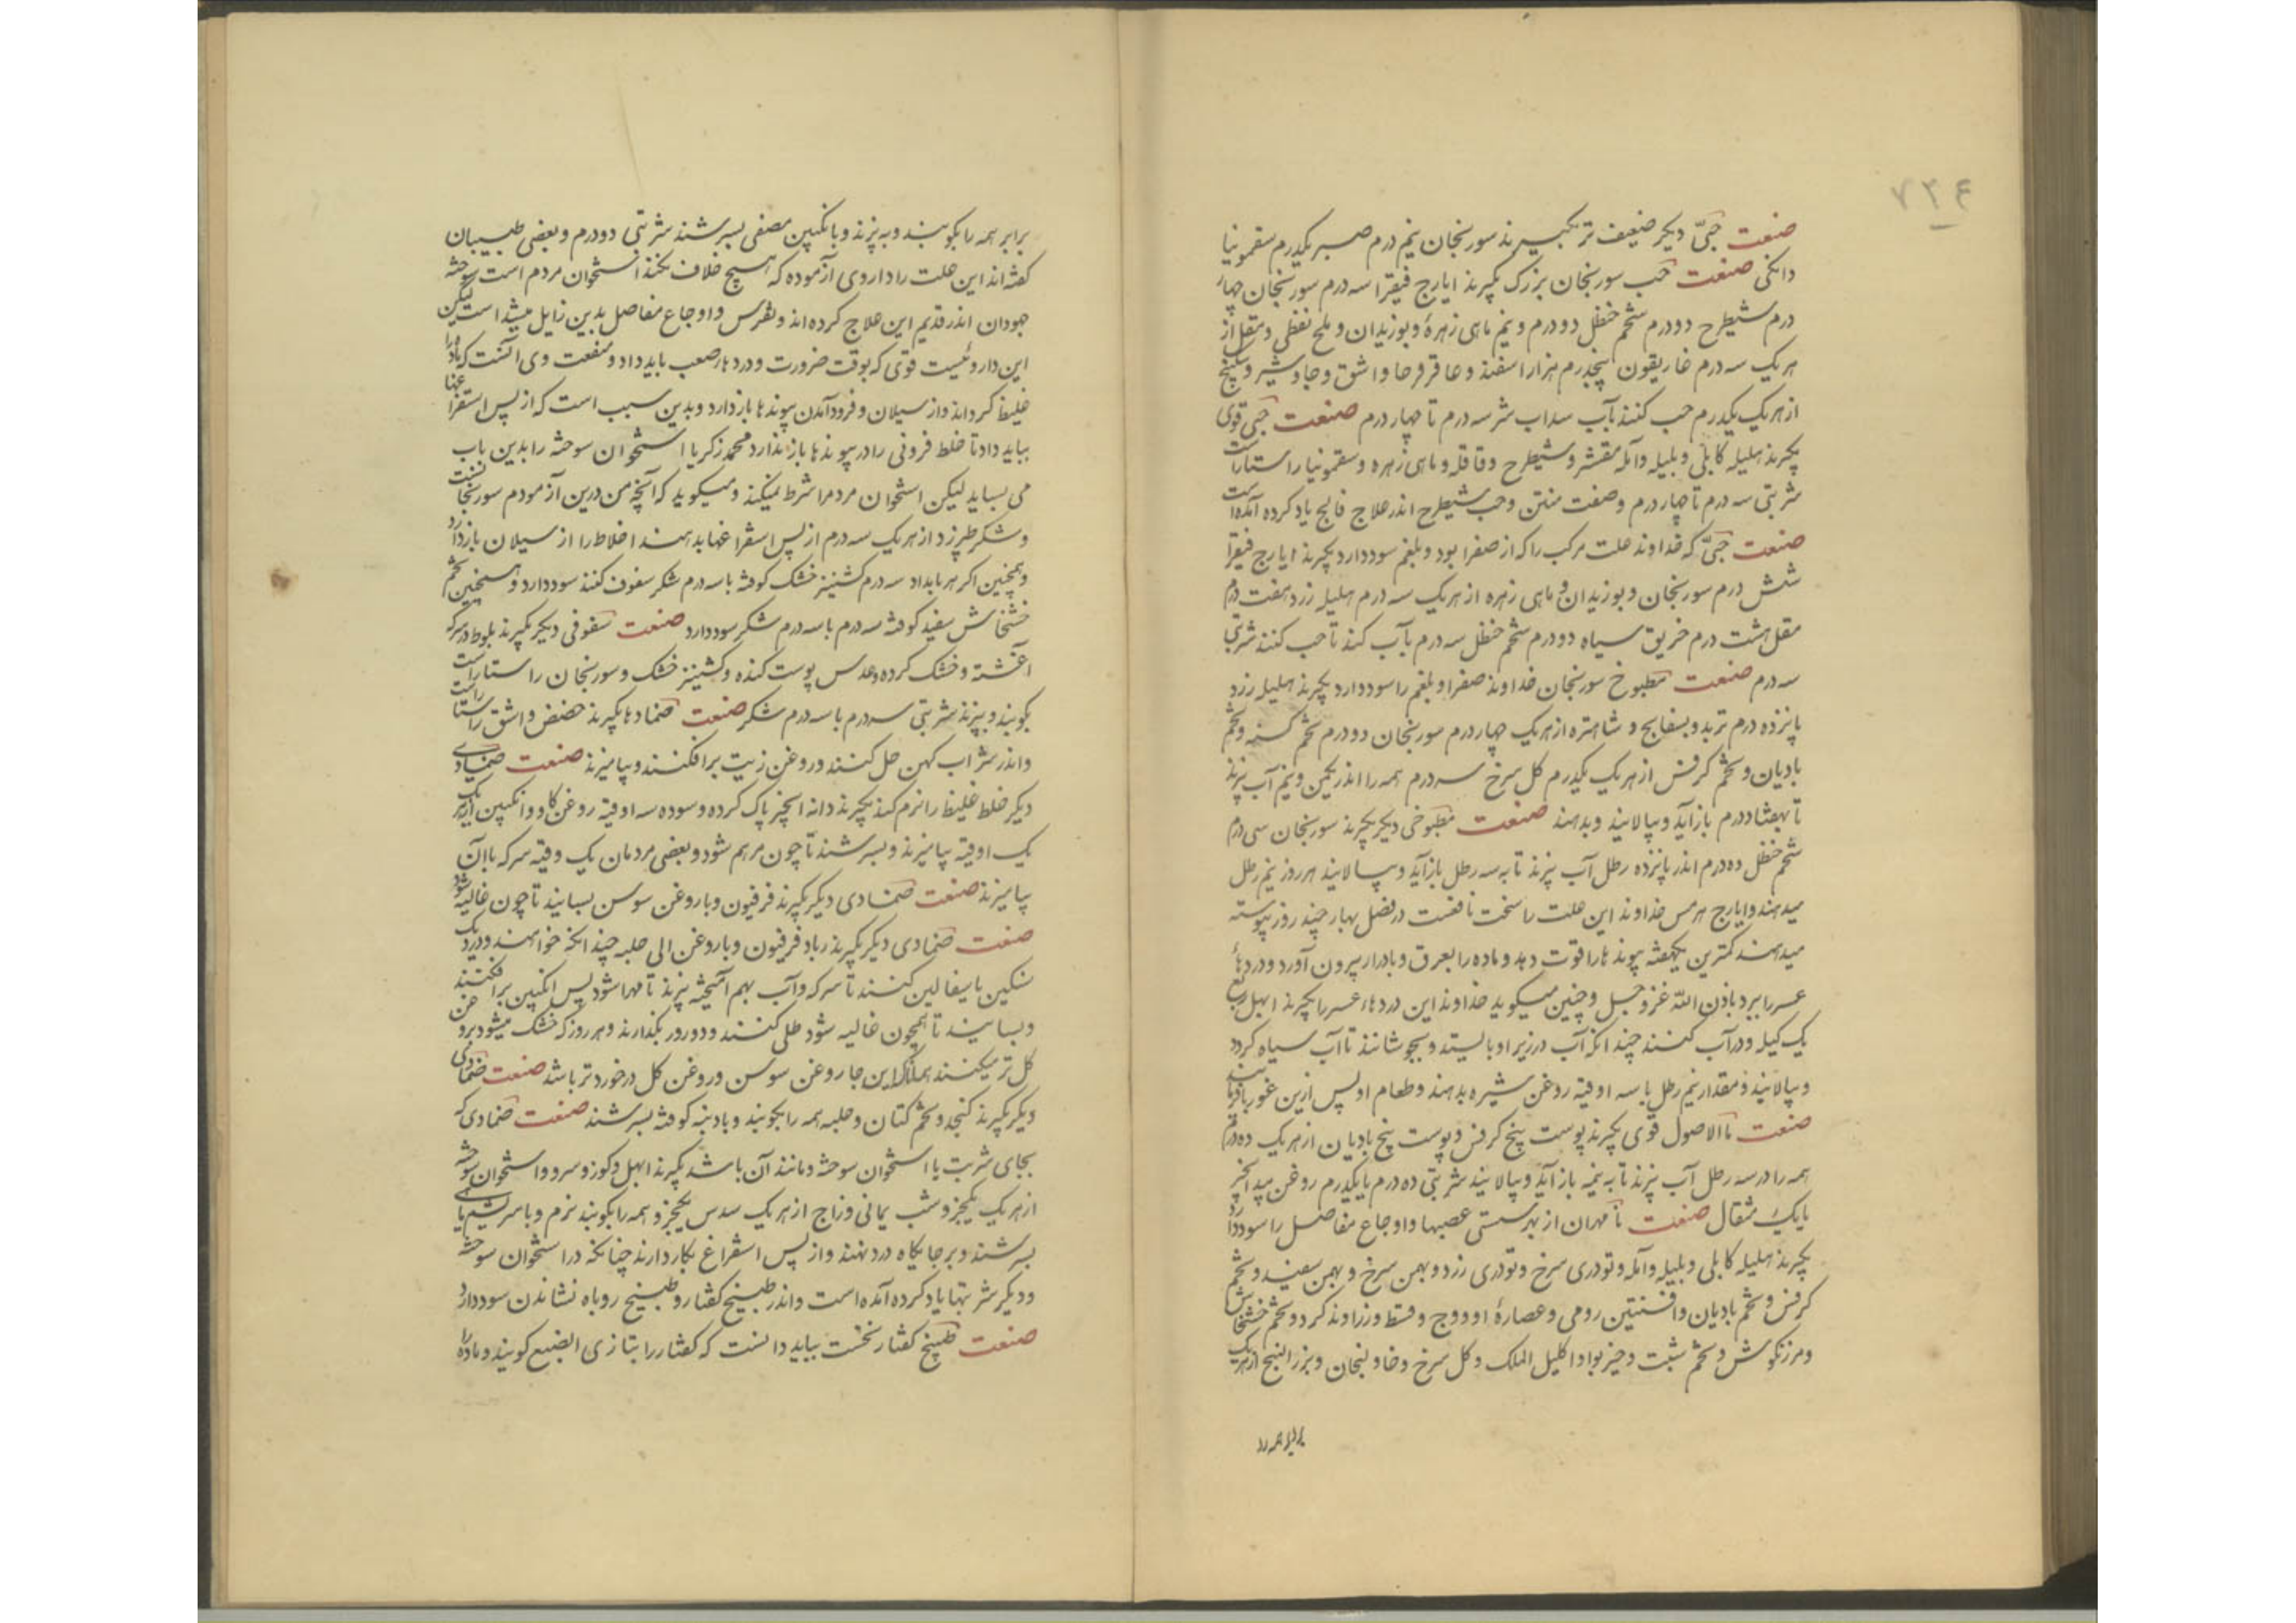 ۷۳۴
صنعت حبّی دیکر ضعیف تر بکیرند سورنجان نیم درم صبر یکدرم سقمونیا
دانکی صنعت حب سورنجان بزرک بکیرند ایارج فیقرا سه درم سورنجان چهار
درم شیطرج دودرم شحم حنظل دودرم و نیم ماهی زهره و بوزیدان و ملح نفطی و مقل از
هریک سه درم غاریقون پنجدرم هزار اسفند و عاقرقرحا و اشق و جاوشیر و سکبینج
از هریک یکدرم حب کنند بآب سداب شر سه درم تا چهار درم صنعت حبی قوی
بکیرند هلیله کابلی و بلیله و آمله مقشر و شیطرج و قاقله و ماهی زهره و سقمونیا راستاراست
شربتی سه درم تا چهار درم و صفت منتن و حب شیطرج اندر علاج فالج یاد کرده آمده است
صنعت حبیّ که خداوند علت مرکب را که از صفرا بود و بلغم سود دارد بکیرند ایارج فیقرا
شش درم سورنجان و بوزیدان و ماهی زهره از هریک سه درم هلیله زرد هفت درم
مقل هشت درم خربق سیاه دودرم شحم حنظل سه درم بآب کند تا حب کنند شربتی
سه درم صنعت مطبوخ سورنجان خداوند صفرا و بلغم را سود دارد بکیرند هلیله زرد
پانزده درم تربد و بسفایج و شاهتره از هریک چهار درم سورنجان دودرم تخم کسنه و تخم
بادیان و تخم کرفس از هریک یکدرم کل سرخ سه درم همه را اندر یکمن و نیم آب بپزند
تا بهشتاد درم باز آید و بپالایند و بدهند صنعت مطبوخی دیکر بکیرند سورنجان سی درم
شحم حنظل ده درم اندر پانزده رطل آب بپزند تا به سه رطل باز آید و بپالایند هر روز نیم رطل
میدهند و ایارج هرمس خداوند این علت را سخت نافعست در فصل بهار چند روز پیوسته
میدهند کمترین یکهفته پیوندها را قوت دهد و ماده را بعرق و بادرار بیرون آورد و دردهاء
عسر را ببرد باذن الله عز و جل و چنین میکوید خداوند این دردهاء عسر را بکیرند ابهل ربع
یک کیله و در آب کنند چندانکه آب در زیر او بایستد و بجوشانند تا آب سیاه کردد
و بپالایند و مقدار نیم رطل با سه اوقیه روغن شیره بدهند و طعام او پس ازین غوربا فرمایند
صنعت ماالاصول قوی بکیرند پوست بیخ کرفس و پوست بیخ بادیان از هریک ده درم
همه را در سه رطل آب بپزند تا به نیمه باز آید و بپالایند شربتی ده درم با یکدرم روغن بیدانجیر
یا یک مثقال صنعت مهران از بهر سستی عصبها و اوجاع مفاصل را سود دارد
بکیرند هلیله کابلی و بلیله و آمله و تودری سرخ و تودری زرد و بهمن سرخ و بهمن سفید و تخم
کرفس و تخم بادیان و افسنتین رومی و عصارهٔ او و وج و قسط و زراوند کرد و تخم خشخاش
و مرزنکوش و تخم شبت و خیربوا و اکلیل الملک و کل سرخ و خاولنجان و بزر البنج از هریک
برابر همه را
برابر همه را بکوبند و به بپزند و بانکبین مصفی بسرشند شربتی دودرم و بعضی طبیبان
کفته اند این علت را داروی آزموده که هیچ خلاف نکند استخوان مردم است سوخته
جودان اندر قدیم این علاج کرده اند و نقرس و اوجاع مفاصل بدین زایل میشد است لیکن
این داروئیست قوی که بوقت ضرورت و دردهاء صعب باید داد و منفعت وی آنست که ماده را
غلیظ کرداند و از سیلان و فرود آمدن پیوندها باز دارد و بدین سبب است که از پس استفراغها
بباید داد تا خلط فزونی را در پیوندها باز ندارد محمد زکریا استخوان سوخته را بدین باب
می بساید لیکن استخوان مردم را شرط نمیکند و میکوید که آنچه من درین آزمودم سورنجانست
و شکر طبرزد از هریک سه درم از پس استفراغها بدهند اخلاط را از سیلان باز دارد
و همچنین اکر هر بامداد سه درم کشنیز خشک کوفته با سه درم شکر سفوف کنند سود دارد و همچنین تخم
خشخاش سفید کوفته سه درم با سه درم شکر سود دارد صنعت سفوفی دیکر بکیرند بلوط در سرکه
آغشته و خشک کرده و عدس پوست کنده و کشنیز خشک و سورنجان راستاراست
بکوبند و ببیزند شربتی سه درم با سه درم شکر صنعت ضمادها بکیرند حضض و اشق راستاراست
و اندر شراب کهن حل کنند و روغن زیت برافکنند و بیامیزند صنعت ضمادی
دیکر خلط غلیظ را نرم کند بکیرند دانه انجیر پاک کرده و سوده سه اوقیه روغن کاو و انکبین از هریک
یک اوقیه بیامیزند و بسرشند تا چون مرهم شود و بعضی مردمان یک وقیه سرکه با آن
بیامیزند صنعت ضمادی دیکر بکیرند فرفیون و با روغن سوسن بسایند تا چون غالیه شود
صنعت ضمادی دیکر بکیرند رباد فرفیون و با روغن الی حلبه چندانکه خواهند و در دیک
سنکین یا سفالین کنند تا سرکه و آب بهم آمیخته بپزند تا مهرا شود پس انکبین برافکنند
و بسایند تا همچون غالیه شود طلی کنند و دو روز بکذارند و هر روز که خشک میشود بروغن
کل تر میکنند این جا روغن سوسن و روغن کل در خورد تر باشد صنعت ضمادی
دیکر بکیرند کنجد و تخم کتان و حلبه همه را بکوبند و با دنبه کوفته بسرشند صنعت ضمادی که
بجای شربت با استخوان سوخته و مانند آن باشد بکیرند ابهل و کوز و سرو و استخوان سوخته
از هریک یکجزو شب یمانی و زاج از هریک سدس یکجزو همه را بکوبند نرم و با سریشم ماهی
بسرشند و بر جایکاه درد نهند و از پس استفراغ بکار دارند چنانکه در استخوان سوخته
و دیکر شربتها یاد کرده آمده است و اندر طبیخ کفتار و طبیخ روباه نشاندن سود دارد
صنعت طبیخ کفتار نخست بباید دانست که کفتار را بتازی الضبع کویند و ماده را